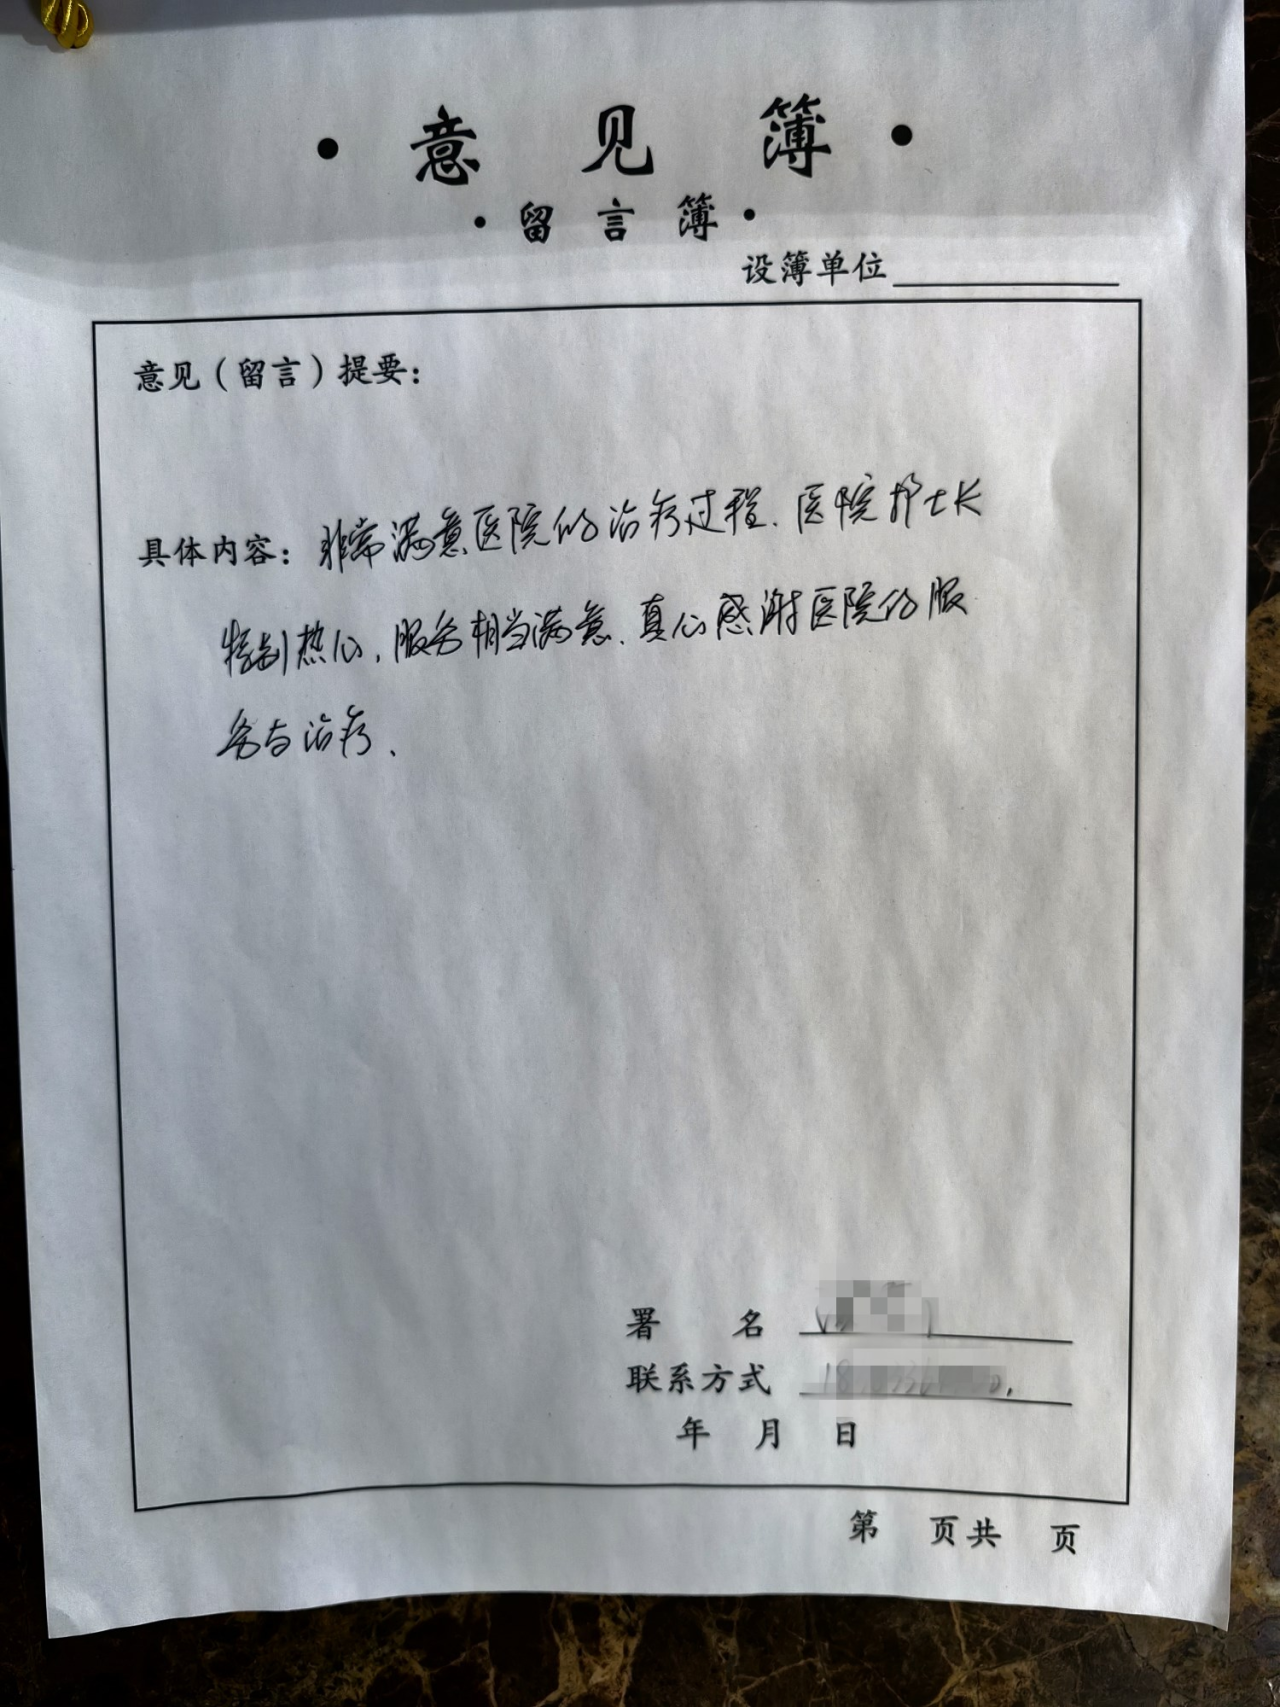 ·意见簿·
·留言簿·
设簿单位
意见（留言）提要：
具体内容：非常满意医院的治疗过程、医院护士长
特别热心，服务相当满意、真心感谢医院的服
务与治疗、
署名
联系方式
年 月 日
第 页共 页